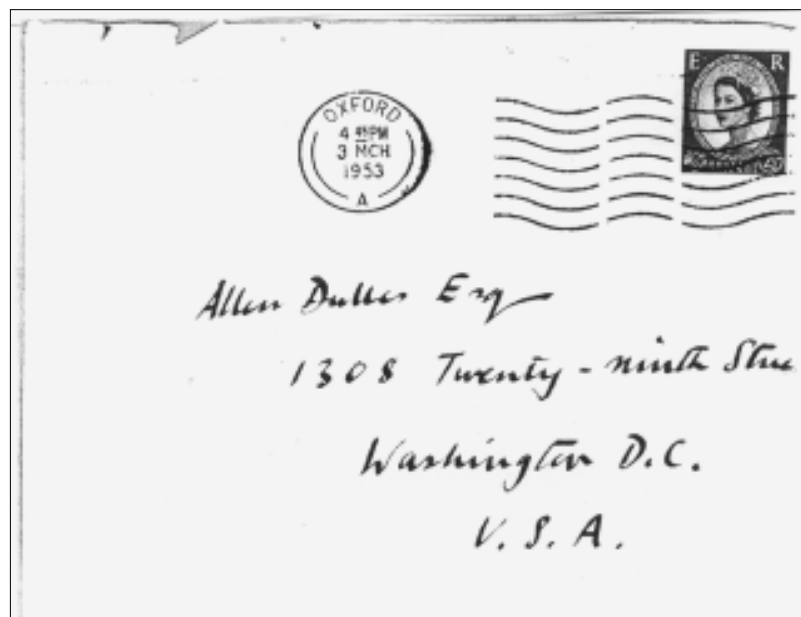 E R
OXFORD
4 45PM
3 MCH
1953
A
Allen Dulles Esq
1308 Twenty-ninth Stree
Washington D.C.
U.S.A.